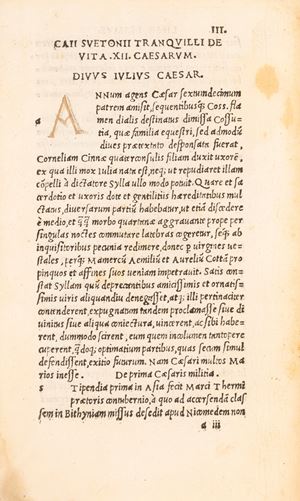 III.
CAII SVETONII TRANQVILLI DE
VITA .XII. CAESARVM.
DIVVS IVLIVS CAESAR.
A NNum agens Cæsar sextumdecimum
patrem amisit, sequentibusq; Coss. fla
a men dialis destinatus dimissa Cossu/
tia, quæ familia equestri, sed admodũ
diues prætextato desponsata fuerat,
Corneliam Cinnæ quater consulis filiam duxit uxorẽ,
ex qua illi mox Iulia nata est, neq; ut repudiaret illam
cõpelli à dictatore Sylla ullo modo potuit. Quare et sa
cerdotio et uxoris dote et gentilitiis hæreditatibus mul
ctatus, diuersarum partiũ habebatur, ut etiã discedere
è medio, et quãquam morbo quartanæ aggrauante prope per
singulas noctes commutare latebras cogeretur, seq; ab
inquisitoribus pecunia redimeret, donec p uirgines ue/
stales, perq; Mamercũ Aemiliũ et Aureliũ Cottã pro
pinquos et affines suos ueniam impetrauit. Satis con/
stat Syllam quũ deprecantibus amicissimis et ornatis/
simis uiris aliquandiu denegasset, atq; illi pertinaciter
contenderent, expugnatum tandem proclamasse siue di
uinitus siue aliqua coniectura, uincerent, ac sibi habe/
rent, dummodo scirent, eum quem incolumem tantopere
cuperent, quãdoq; optimatium partibus, quas secum simul
defendissent, exitio futurum. Nam Cæsari multos Ma
rios inesse. De prima Cæsaris militia.
S Tipendia prima in Asia fecit Marci Thermi
prætoris contubernio, à quo ad accersendã clas
sem in Bithyniam missus desedit apud Nicomedem non
a iii